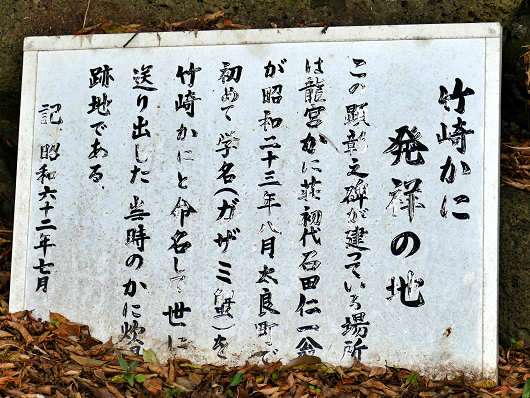 竹崎かに
発祥の地
この顕彰之碑が建っている場所
は龍宮かに荘初代石田仁一翁
が昭和二十三年八月太良町で
初めて学名(ガザミ蟹)を
竹崎かにと命名して世に
送り出した当時のかに炊
跡地である。
記 昭和六十二年七月